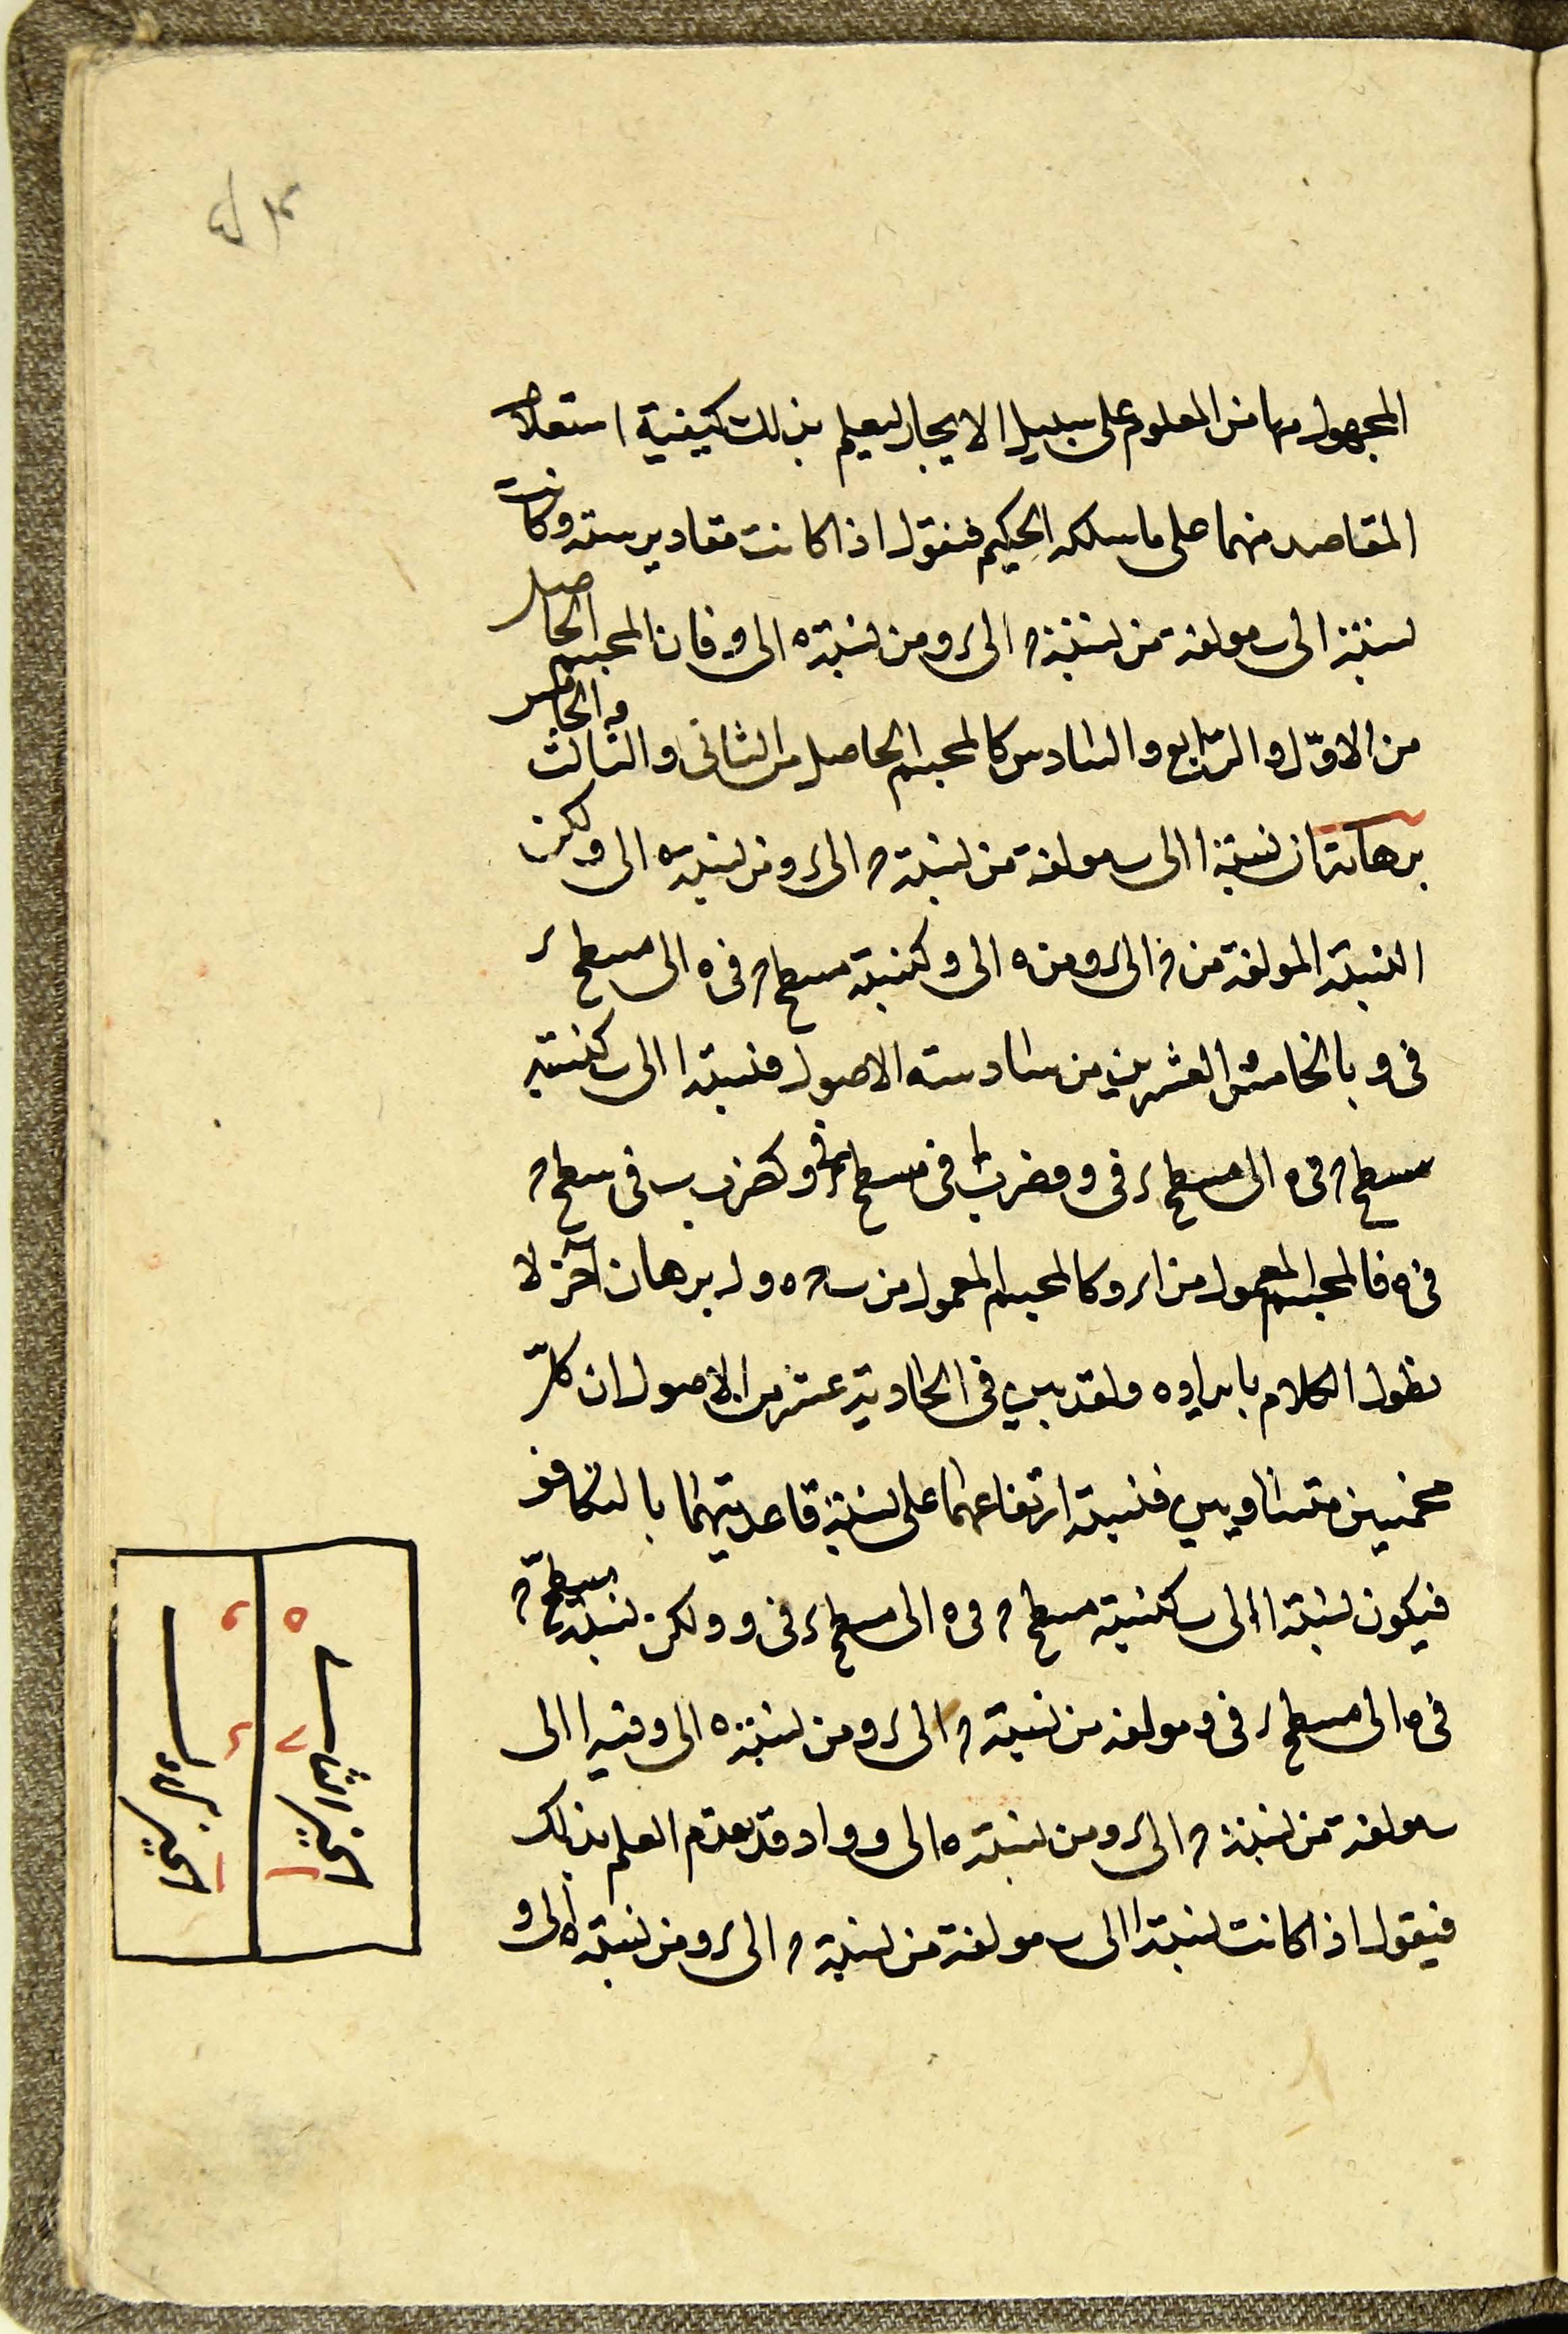 المجهول منها من المعلوم على سبيل الايجاز ليعلم بذلك كيفية استعلام
المقاصد منهما على ما سلكه الحكيم فنقول اذا كانت مقادير ستة وكانت
نسبة ا الى ب مولفة من نسبة ح الى ء ومن نسبة ه الى و فان المجسم الحاصل
من الاوّل والرّابع والسادس كالمجسم الحاصل من الثانى والثالث والخامس
برهانه ان نسبة ا الى ب مولفة من نسبة ح الى ء ومن نسبة ه الى و لكن
النسبة المولفة من ح الى ء ومن ه الى و كنسبة مسطح ح فى ه الى مسطح ء
فى و بالخامس والعشرين من سادسة الاصول فنسبة ا الى ب كنسبة
مسطح ح فى ه الى مسطح ء فى و فضرب ا فى مسطح ء فى و كضرب ب فى سطح ح
فى ه فالمجسم المعمول من ا ء و كالمجسم المعمول من ب ح ه وله برهان آخر لا
نطول الكلام بايراده ولقد بين فى الحادية عشر من الاصول ان كلّ
مجسمين متساويين فنسبة ارتفاعهما على نسبة قاعدتيهما بالتكافو
فيكون نسبة ا الى ب كنسبة مسطح ح فى ه الى مسطح ء فى و ولكن نسبة مسطح ح
فى ه الى مسطح ء فى و مولفة من نسبة ح الى ء ومن نسبة ه الى و فنسبة ا الى
ب مولفة من نسبة ح الى ء ومن نسبة ه الى و واذ قد تقدم العلم بذلك
فنقول اذا كانت نسبة ا الى ب مولفة من نسبة ح الى ء ومن نسبة ه الى و